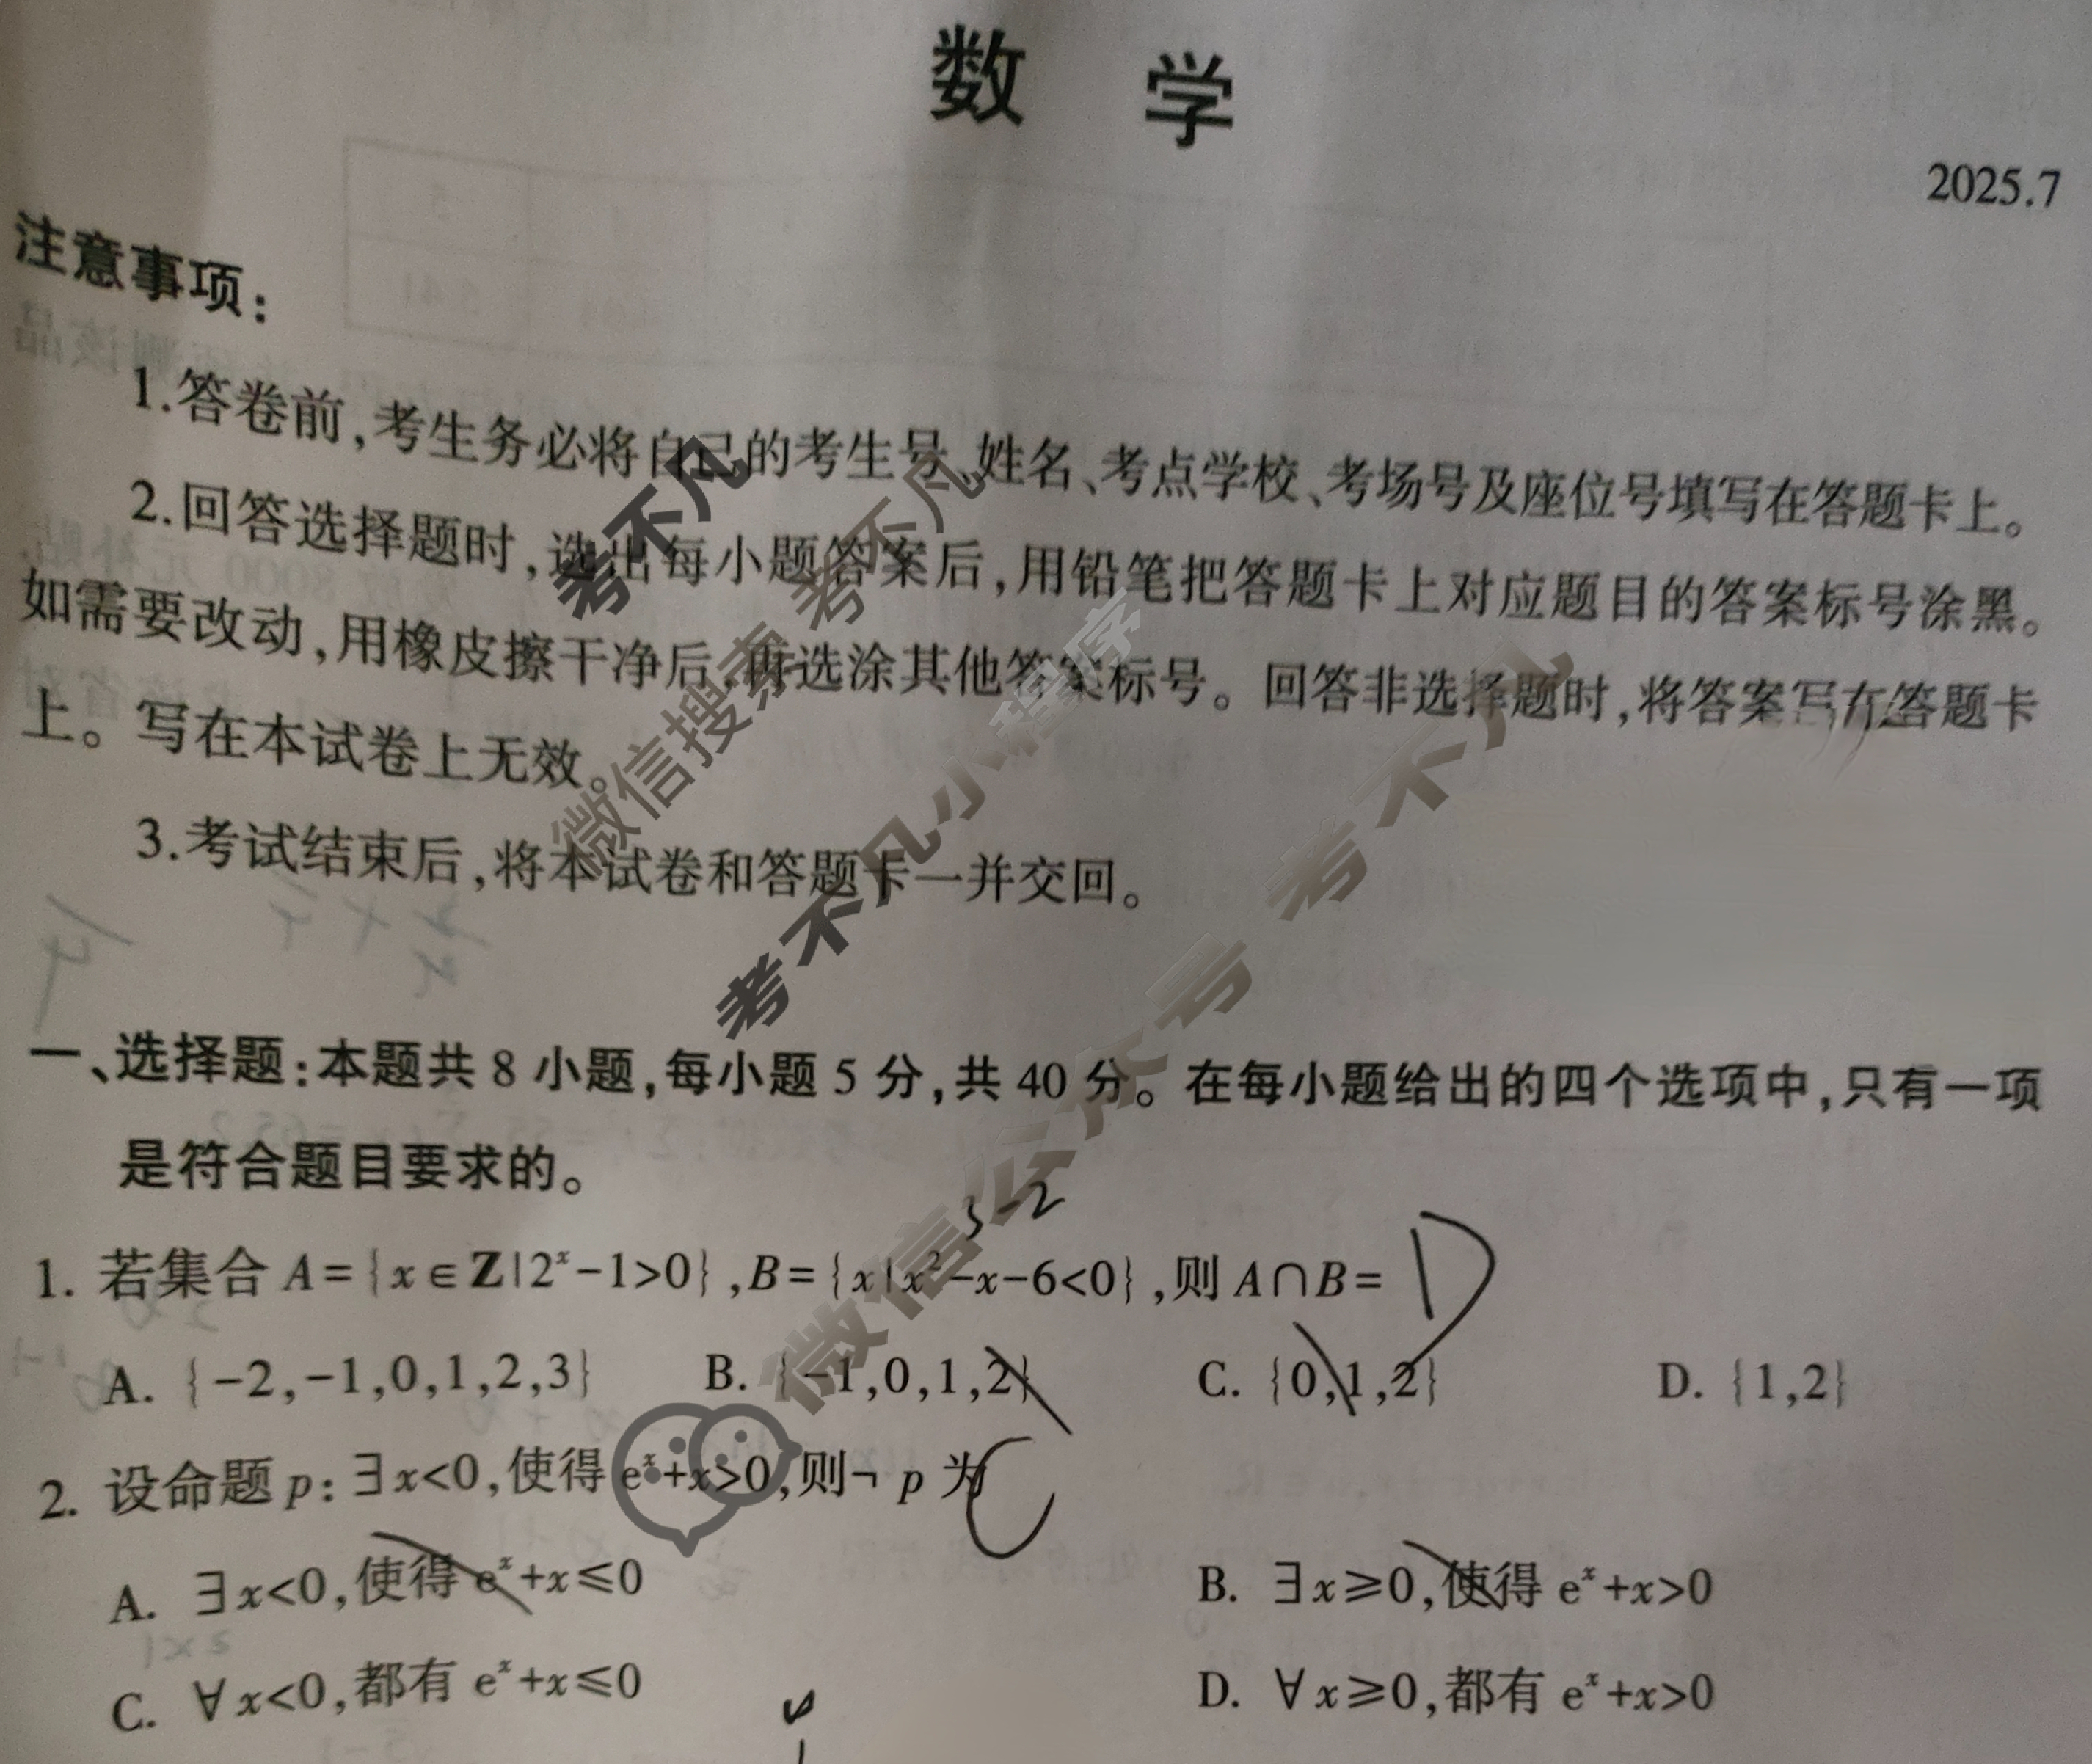 数 学
2025.7
注意事项：
1.答卷前,考生务必将自己的考生号、姓名、考点学校、考场号及座位号填写在答题卡上。
2.回答选择题时,选出每小题答案后,用铅笔把答题卡上对应题目的答案标号涂黑。
如需要改动,用橡皮擦干净后,再选涂其他答案标号。回答非选择题时,将答案写在答题卡
上。写在本试卷上无效。
3.考试结束后,将本试卷和答题卡一并交回。
考不凡
考不凡
微信搜索
考不凡小程序
微信公众号 考不凡
一、选择题:本题共 8 小题,每小题 5 分,共 40 分。在每小题给出的四个选项中,只有一项
是符合题目要求的。
3 -2
1. 若集合 A={x∈Z|2ˣ-1>0},B={x|x²-x-6<0},则 A∩B= D
A. {-2,-1,0,1,2,3} B. {-1,0,1,2} C. {0,1,2} D. {1,2}
2. 设命题 p:∃x<0,使得 eˣ+x>0,则¬ p 为 C
A. ∃x<0,使得 eˣ+x≤0 B. ∃x≥0,使得 eˣ+x>0
C. ∀x<0,都有 eˣ+x≤0 D. ∀x≥0,都有 eˣ+x>0